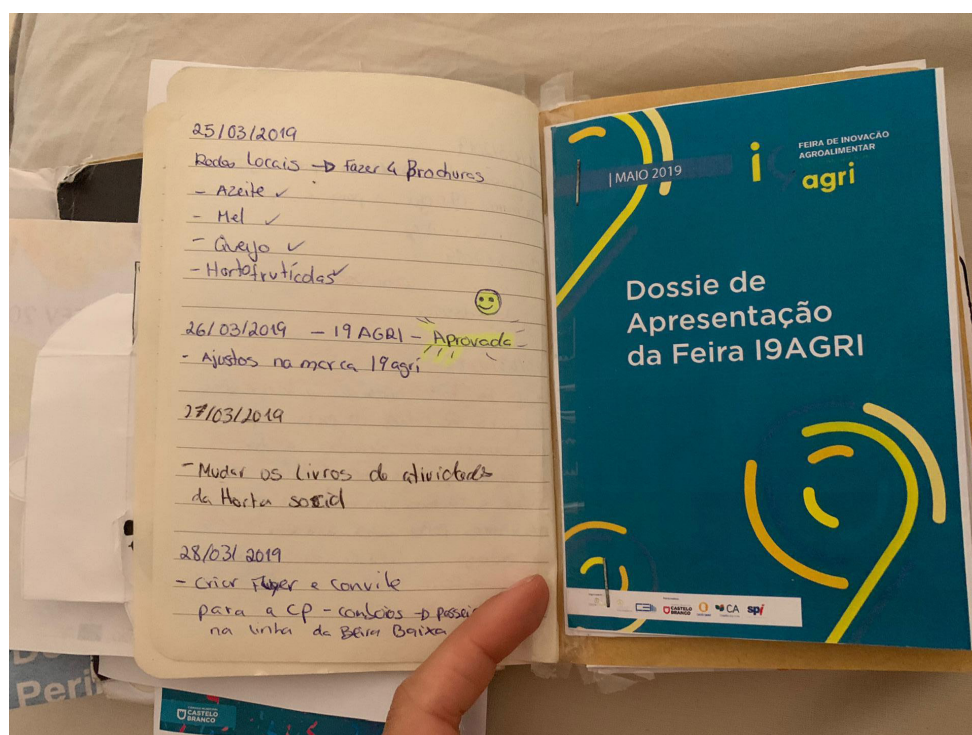 25/03/2019
Rodas Locais → Fazer 4 Brochuras
- Azeite ✓
- Mel ✓
- Queijo ✓
- Hortofrutícolas ✓
26/03/2019 - 19 AGRI - Aprovada
- Ajustos na marca 19agri
27/03/2019
- Mudar os livros de atividades
da Horta social
28/03/2019
- Criar Flyer e convite
para a CP - comboios → passei
na linha da Beira Baixa
| MAIO 2019
FEIRA DE INOVAÇÃO
AGROALIMENTAR
i9
agri
Dossie de
Apresentação
da Feira I9AGRI
CASTELO
BRANCO
CA
spi
Peri
CASTELO
BRANCO